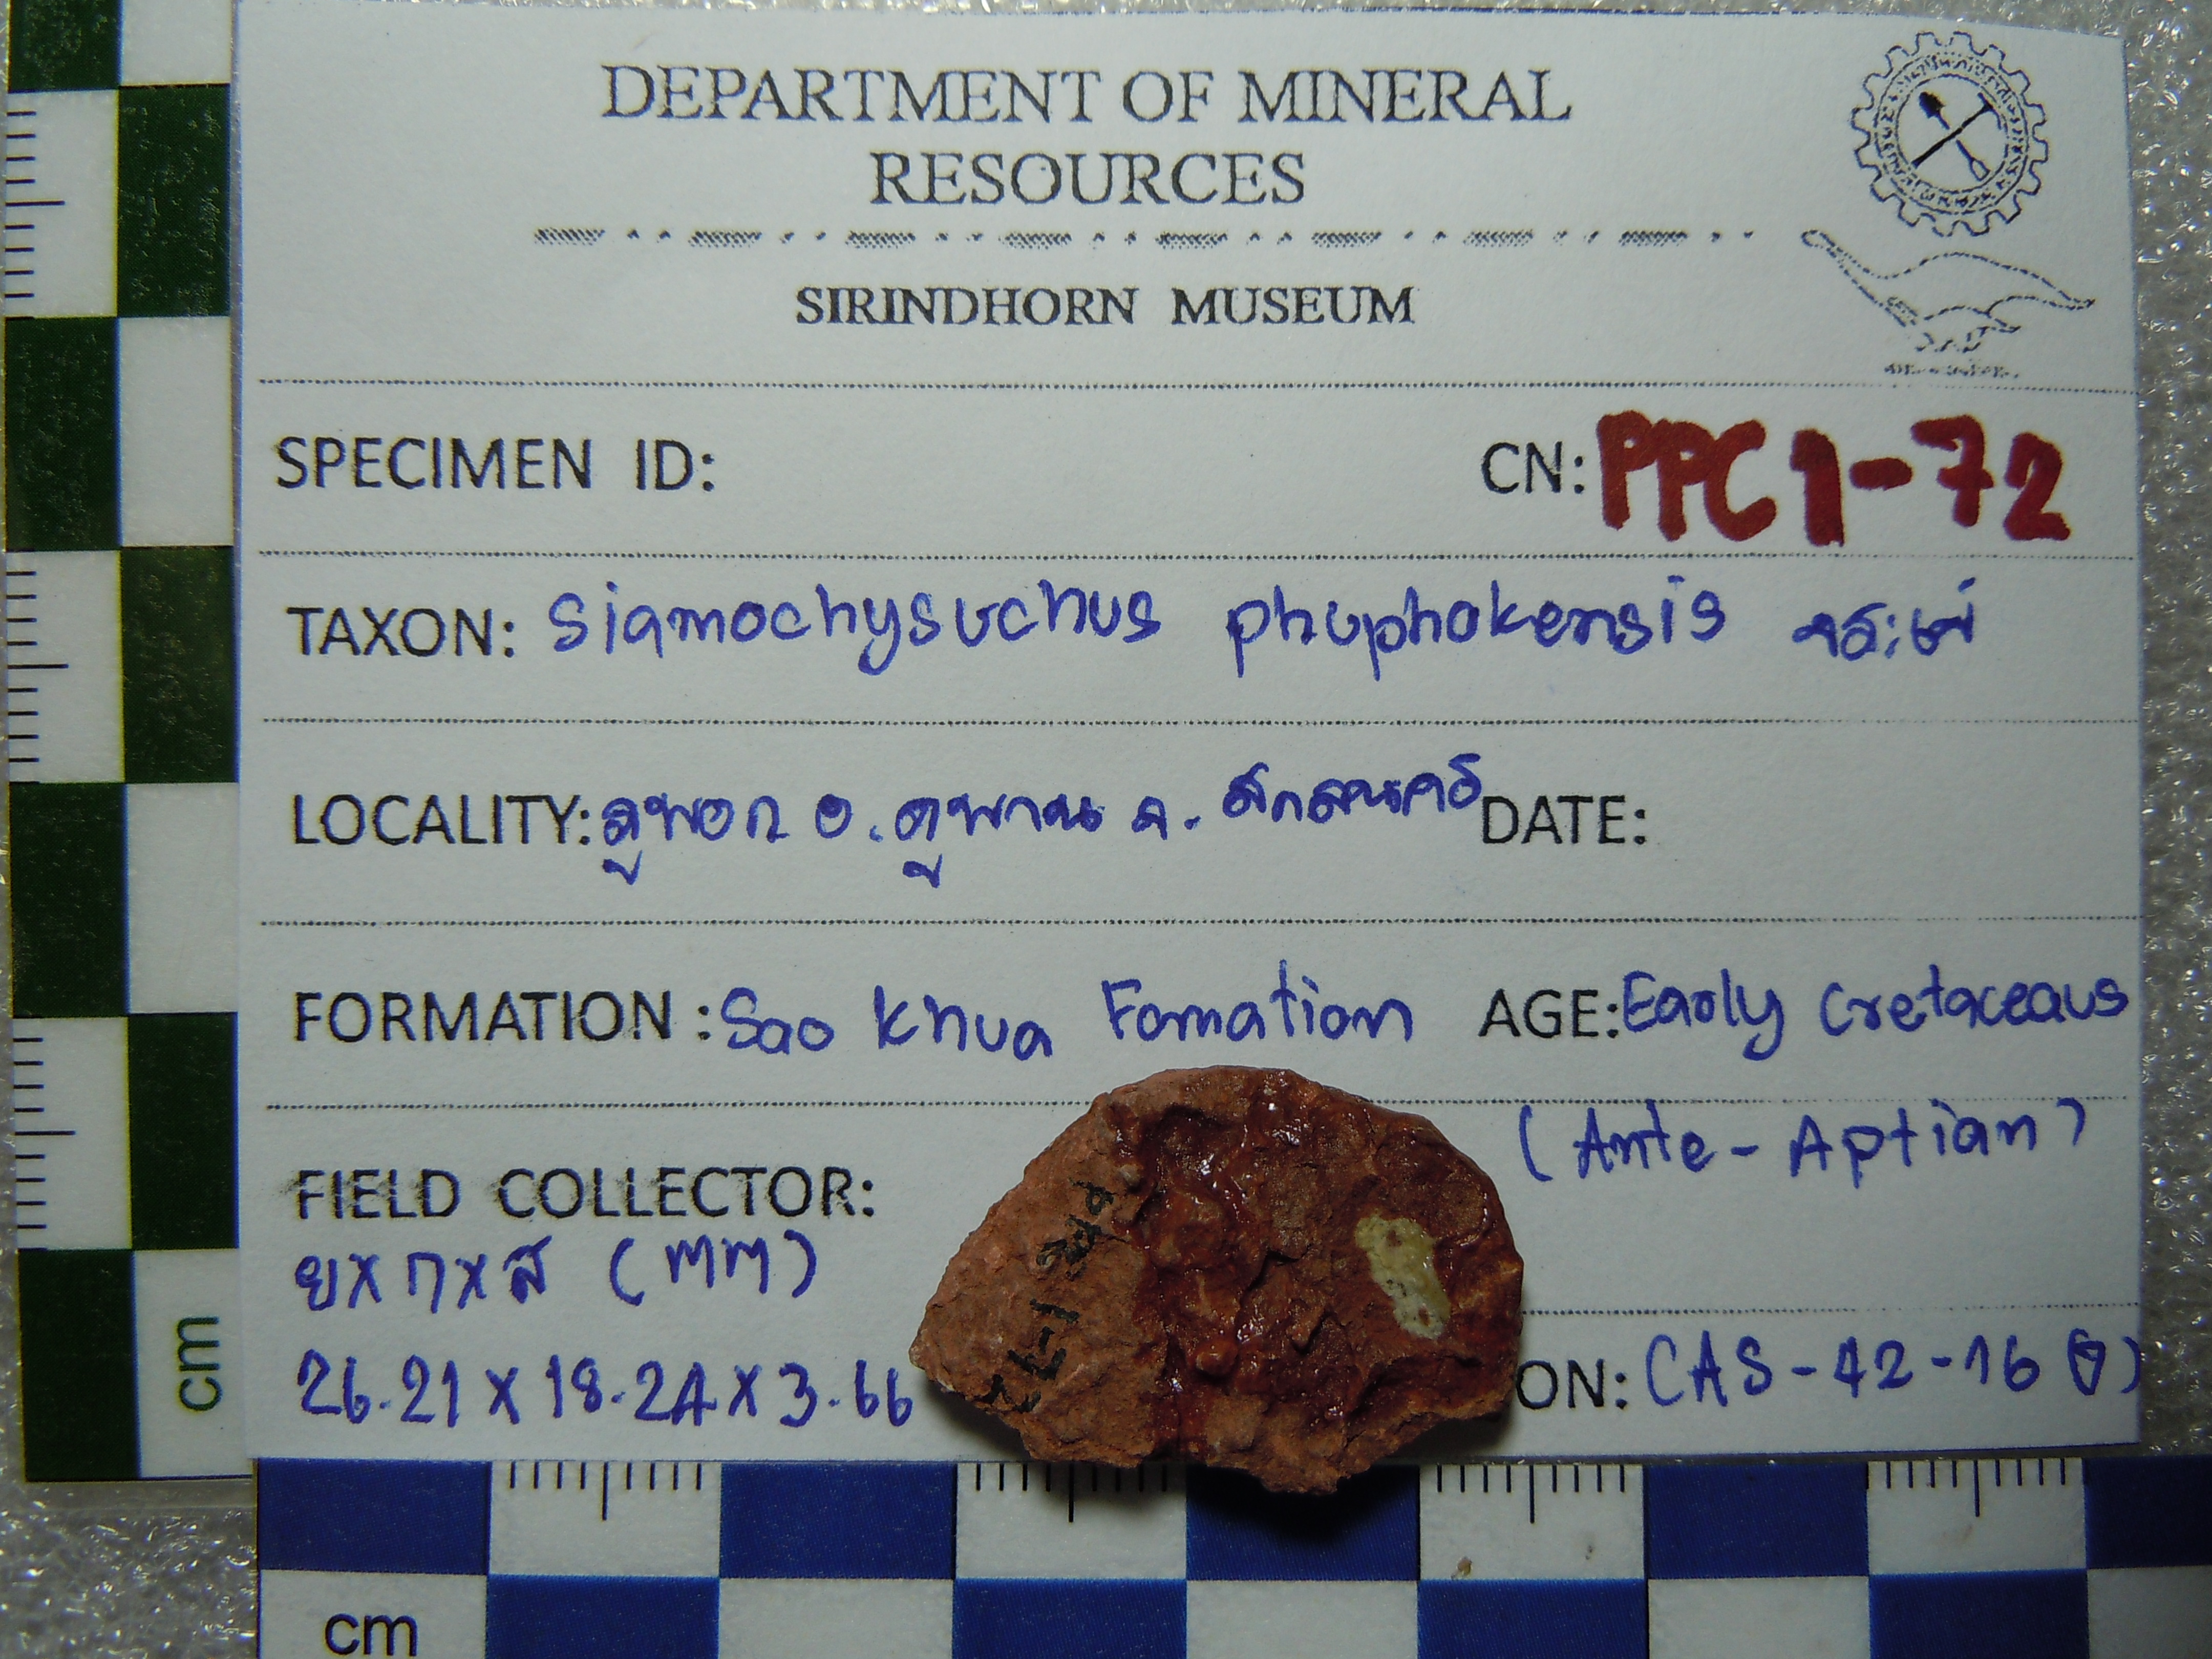 DEPARTMENT OF MINERAL
RESOURCES
SIRINDHORN MUSEUM
SPECIMEN ID: CN: PPC1-72
TAXON: Siamochysuchus phuphokensis จระเข้
LOCALITY: ภูพอก อ. ภูพาน จ. สกลนคร DATE:
FORMATION : Sao Khua Fomation AGE: Early Cretaceaus
(Ante-Aptian)
FIELD COLLECTOR:
ยxกxส (MM)
26.21 x 18.24 x 3.66 ON: CAS-42-16
1-72
cm
cm